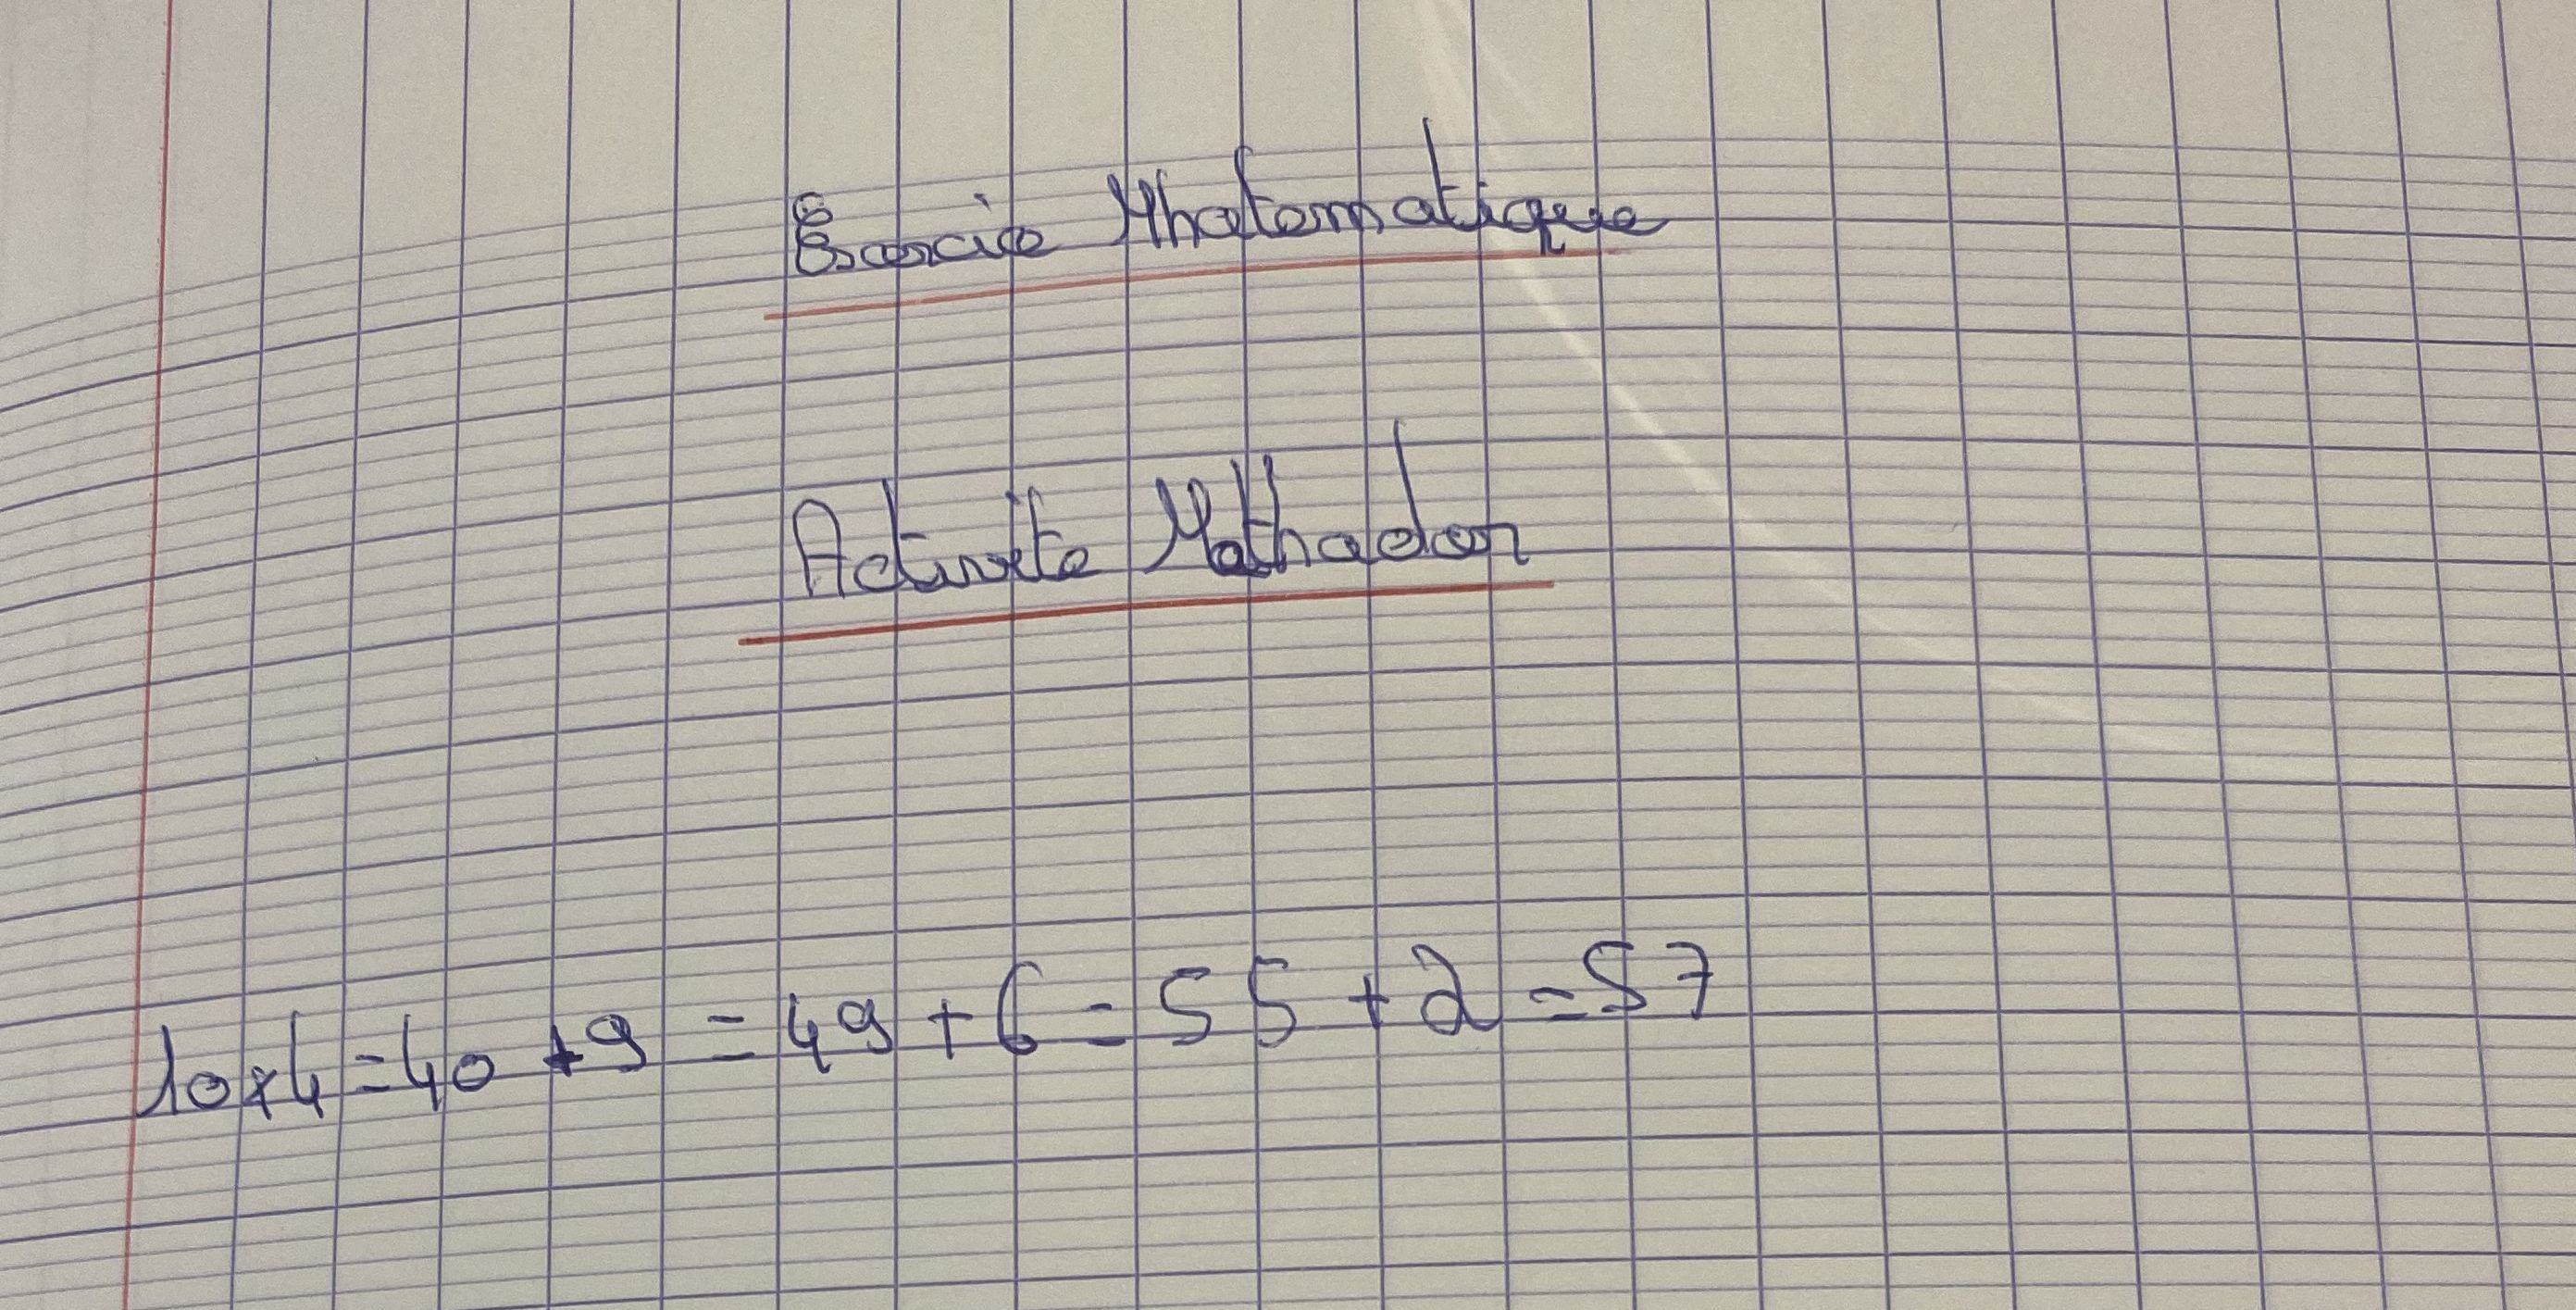 Exercice Mhatematique
Activite Mathador
10x4=40+9=49+6=55+2=57